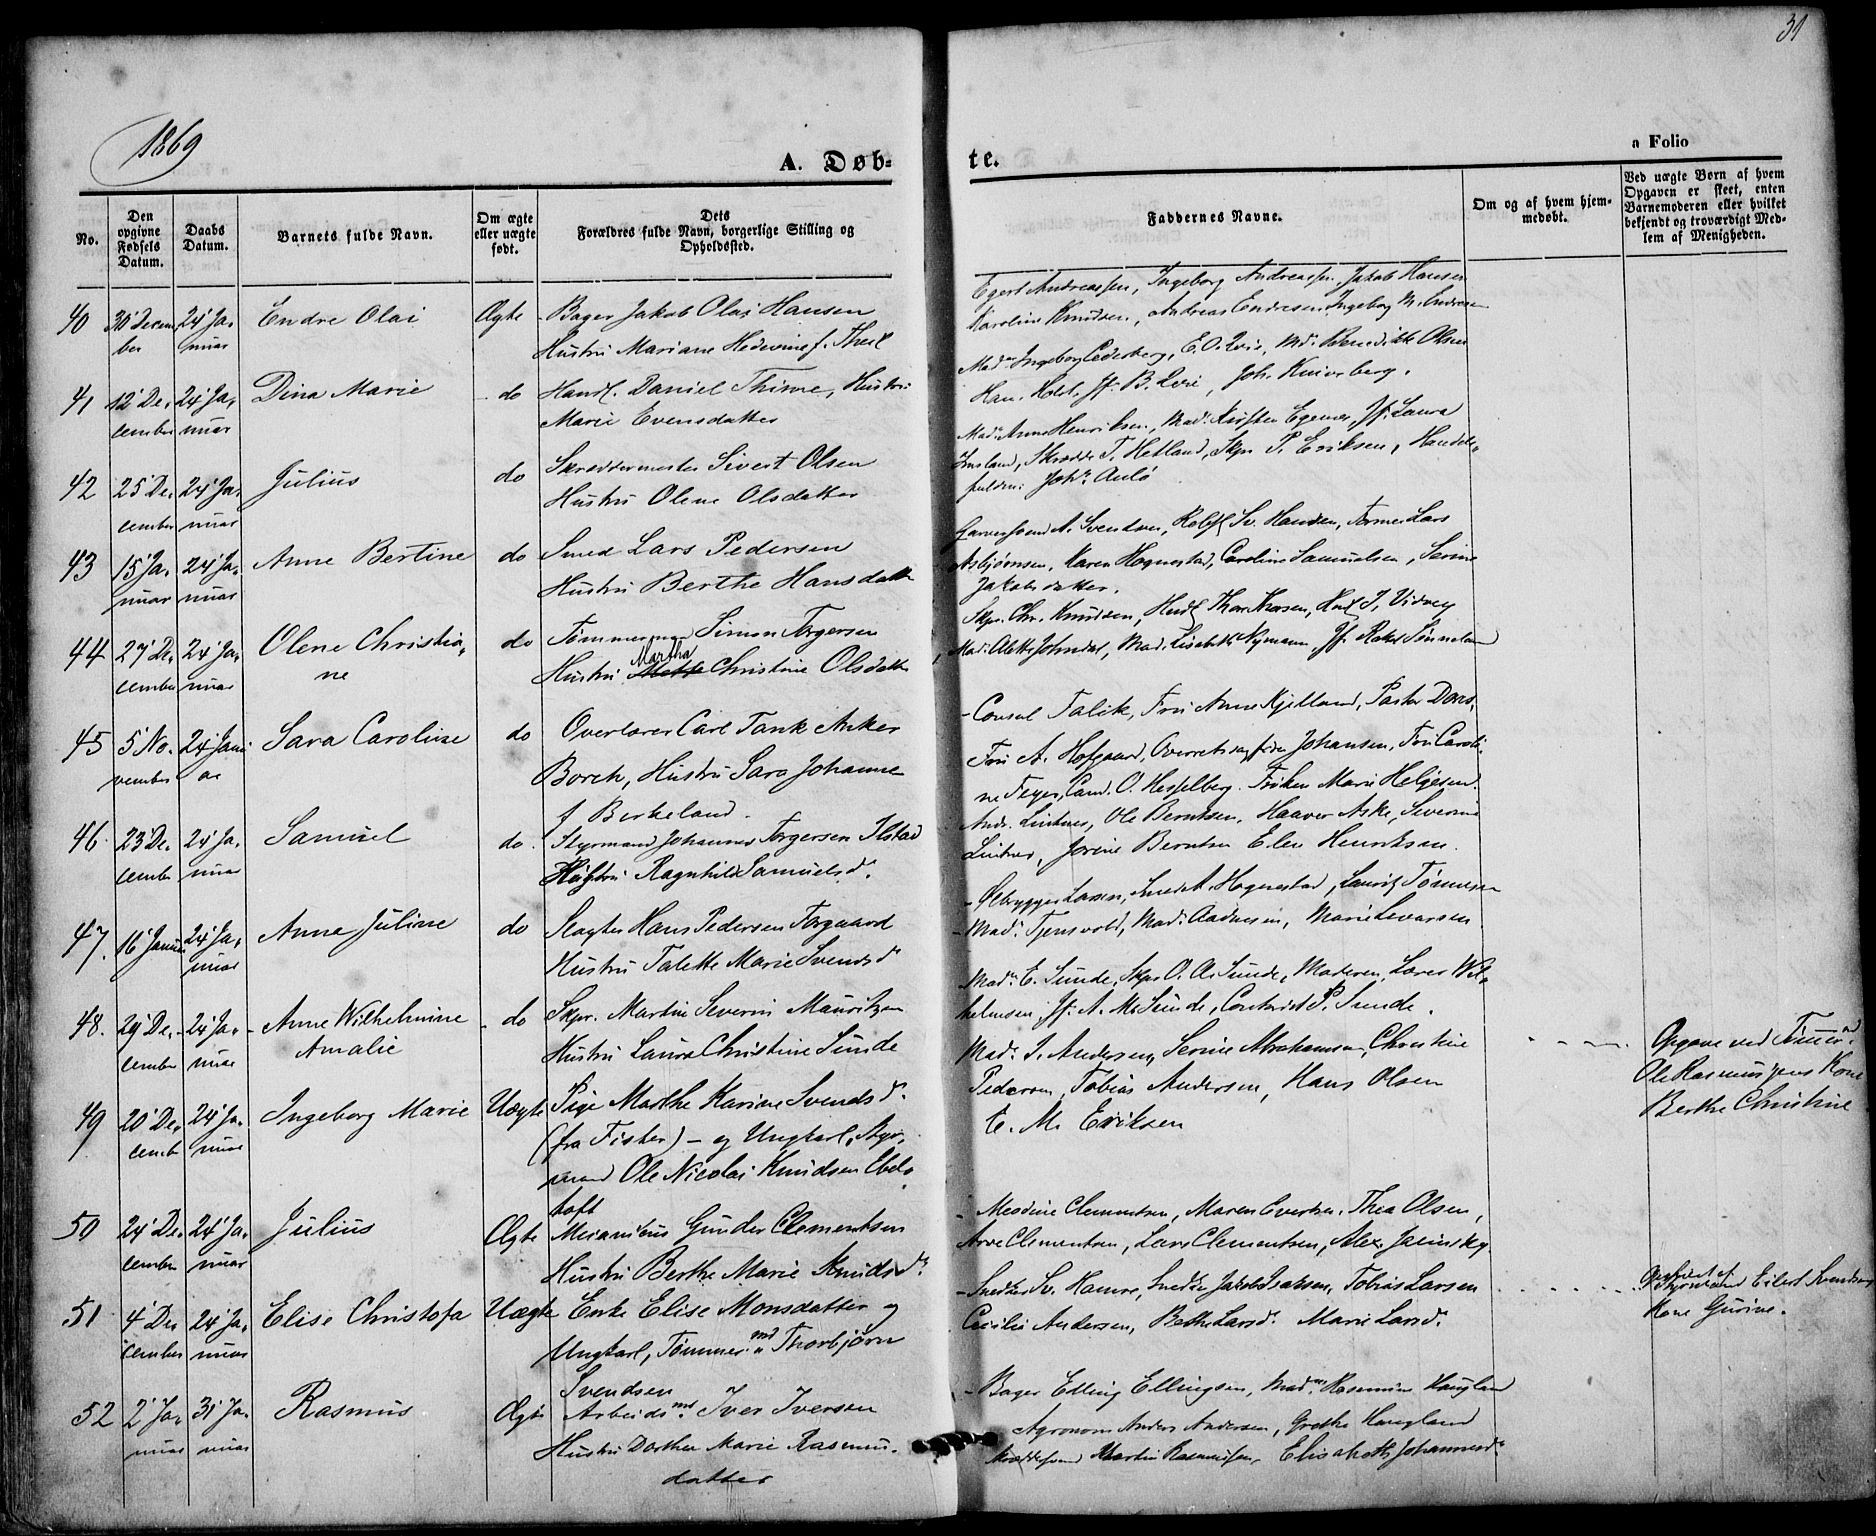 31
1869
A. Døb-
te.
a Folio
No.
Den opgivne Fødsels Datum.
Daabs Datum.
Barnets fulde Navn.
Om ægte eller uægte født.
Dets Forældres fulde Navn, borgerlige Stilling og Opholdssted.
Faddernes Navne.
Om og af hvem hjem-
medøbt.
Ved uægte Børn af hvem
Opgaven er skeet, enten
Barnemoderen eller hvilket
bekjendt og troværdigt Med-
lem af Menigheden.
40 30 Decem 24 Ja- Endre Olai Ægte Bager Jakob Olai Hansen
ber nuar Hustru Mariane Hedevine f. Theil
Andreassen, Ingeborg Andreassen, Jakob Hansen
Karoline Knudsen, Andreas Endresen, Ingeborg M. Endresen
41 12 De- 24 Ja- Dina Marie do Handl. Daniel Thime, Hustru
cember nuar Marie Evensdatter
Mad. Ingeborg Cederberg, E. O. Md. Benedikte Olsen
Han. Holst, Jf. B. Joh. Kniversberg.
42 25 De- 24 Ja- Julius do Skræddermester Sivert Olsen
cember nuar Hustru Olene Olsdatter
Mad. Anne Henriksen, Mad. Kirsten Egenes, Jf. Laura
Skrædder T. Hetland, Skpr P. Eriksen, Handels-
Joh.
43 15 Ja- 24 Ja- Anne Bertine do Smed Lars Pedersen
nuar nuar Hustru Berthe Hansdatter
Garversvend A. Svendsen, Sv. Hansen, Former Lars
Asbjørnsen, Karen Hognestad, Caroline Samuelsen, Serine
Jakobsdatter.
44 27 De- 24 Ja- Olene Christia- do Tømmermand Simon Torgersen
cember nuar ne Hustru Mette Martha Christine Olsdatter
Skpr. Chr. Knudsen, Handl Thor Handl J. Vidvey
Mad. Alette Johndal, Mad. Lisabeth Nymann, Jf. Rakel
45 5 No- 24 Janu- Sara Caroline do Overlærer Carl Tank Anker
vember ar Borch, Hustru Sara Johanne
f Berkeland.
Consul Falck, Fru Anne Kjelland, Pastor
Fru A. Hofgaard, Overretssagfører Johansen, Fru Caroli-
ne Feyer, Cand. O. Hesselberg. Frøken Marie Helgesen.
46. 23 De- 24 Ja- Samuel do. Styrmand Johannes Torgersen Ilstad
cember nuar Hustru Ragnhild Samuelsd.
Andr. Lintner, Ole Berntsen, Haaver Aske, Severine
Lintner, Jorine Berntsen Elen Henriksen.
47. 16 Januar 24 Ja- Anna Juline do Slagter Hans Pedersen Torgaard
nuar Hustru Talette Marie Svendsd.
Ølbrygger Larsen, Smed A. Hognestad, Lauritz Tønnesen
Mad. Tjensvold, Mad. Marie Levorsen
48. 29 De- 24 Ja- Anne Wilhelmine do Skpr. Martin Severin Mauritzen
cember nuar Amalie Hustru Laura Christine Sunde
Mad. E. Sunde, Skpr O. A. Sunde, Moderen, Lærer Wil-
helmsen, Jf. A. M. Sunde, P. Sunde.
49 20 De- 24 Ja- Ingeborg Marie Uægte Pige Marthe Karine Svendsd.
cemb nuar (fra Fister) - og Ungkarl, Styr-
mand Ole Nicolai Knudsen Ebel-
toft
Mad. I. Andersen, Serine Abrahamsen, Christine
Pedersen, Tobias Andersen, Hans Olsen
E. M. Eriksen
Opgave ved
Ole Rasmussens Kone
Berthe Christine
50 24 De- 24 Ja- Julius Ægte Mecanicus Gunder Clementsen
cember nuar Hustru Berthe Marie Knudsd.
Clementsen, Maren Evertsen, Thea Olsen,
Clementsen, Lars Clementsen, Alex.
51 4 De- 24 Ja- Elise Christofa Uægte Enke Elise Monsdatter og
cember nuar Ungkarl, Tømmermd Thorbjørn
Svendsen
Snedker Sv. Hamre, Snedker Jakob Isaksen, Tobias Larsen
Cecilie Andersen, Bethe Larsd. Marie Larsd.
Eilert Svendsens
Kone Gurine.
52 2 Ja- 31 Ja- Rasmus Ægte Arbeidsmd. Iver Iversen
nuar nuar Hustru Dorthea Marie Rasmus-
datter
Bager Elling Ellingsen, Mad. Rasmine Haugland
Agronom Anders Andersen, Grethe Haugland
Martin Rasmussen, Elisabeth Johannesd.